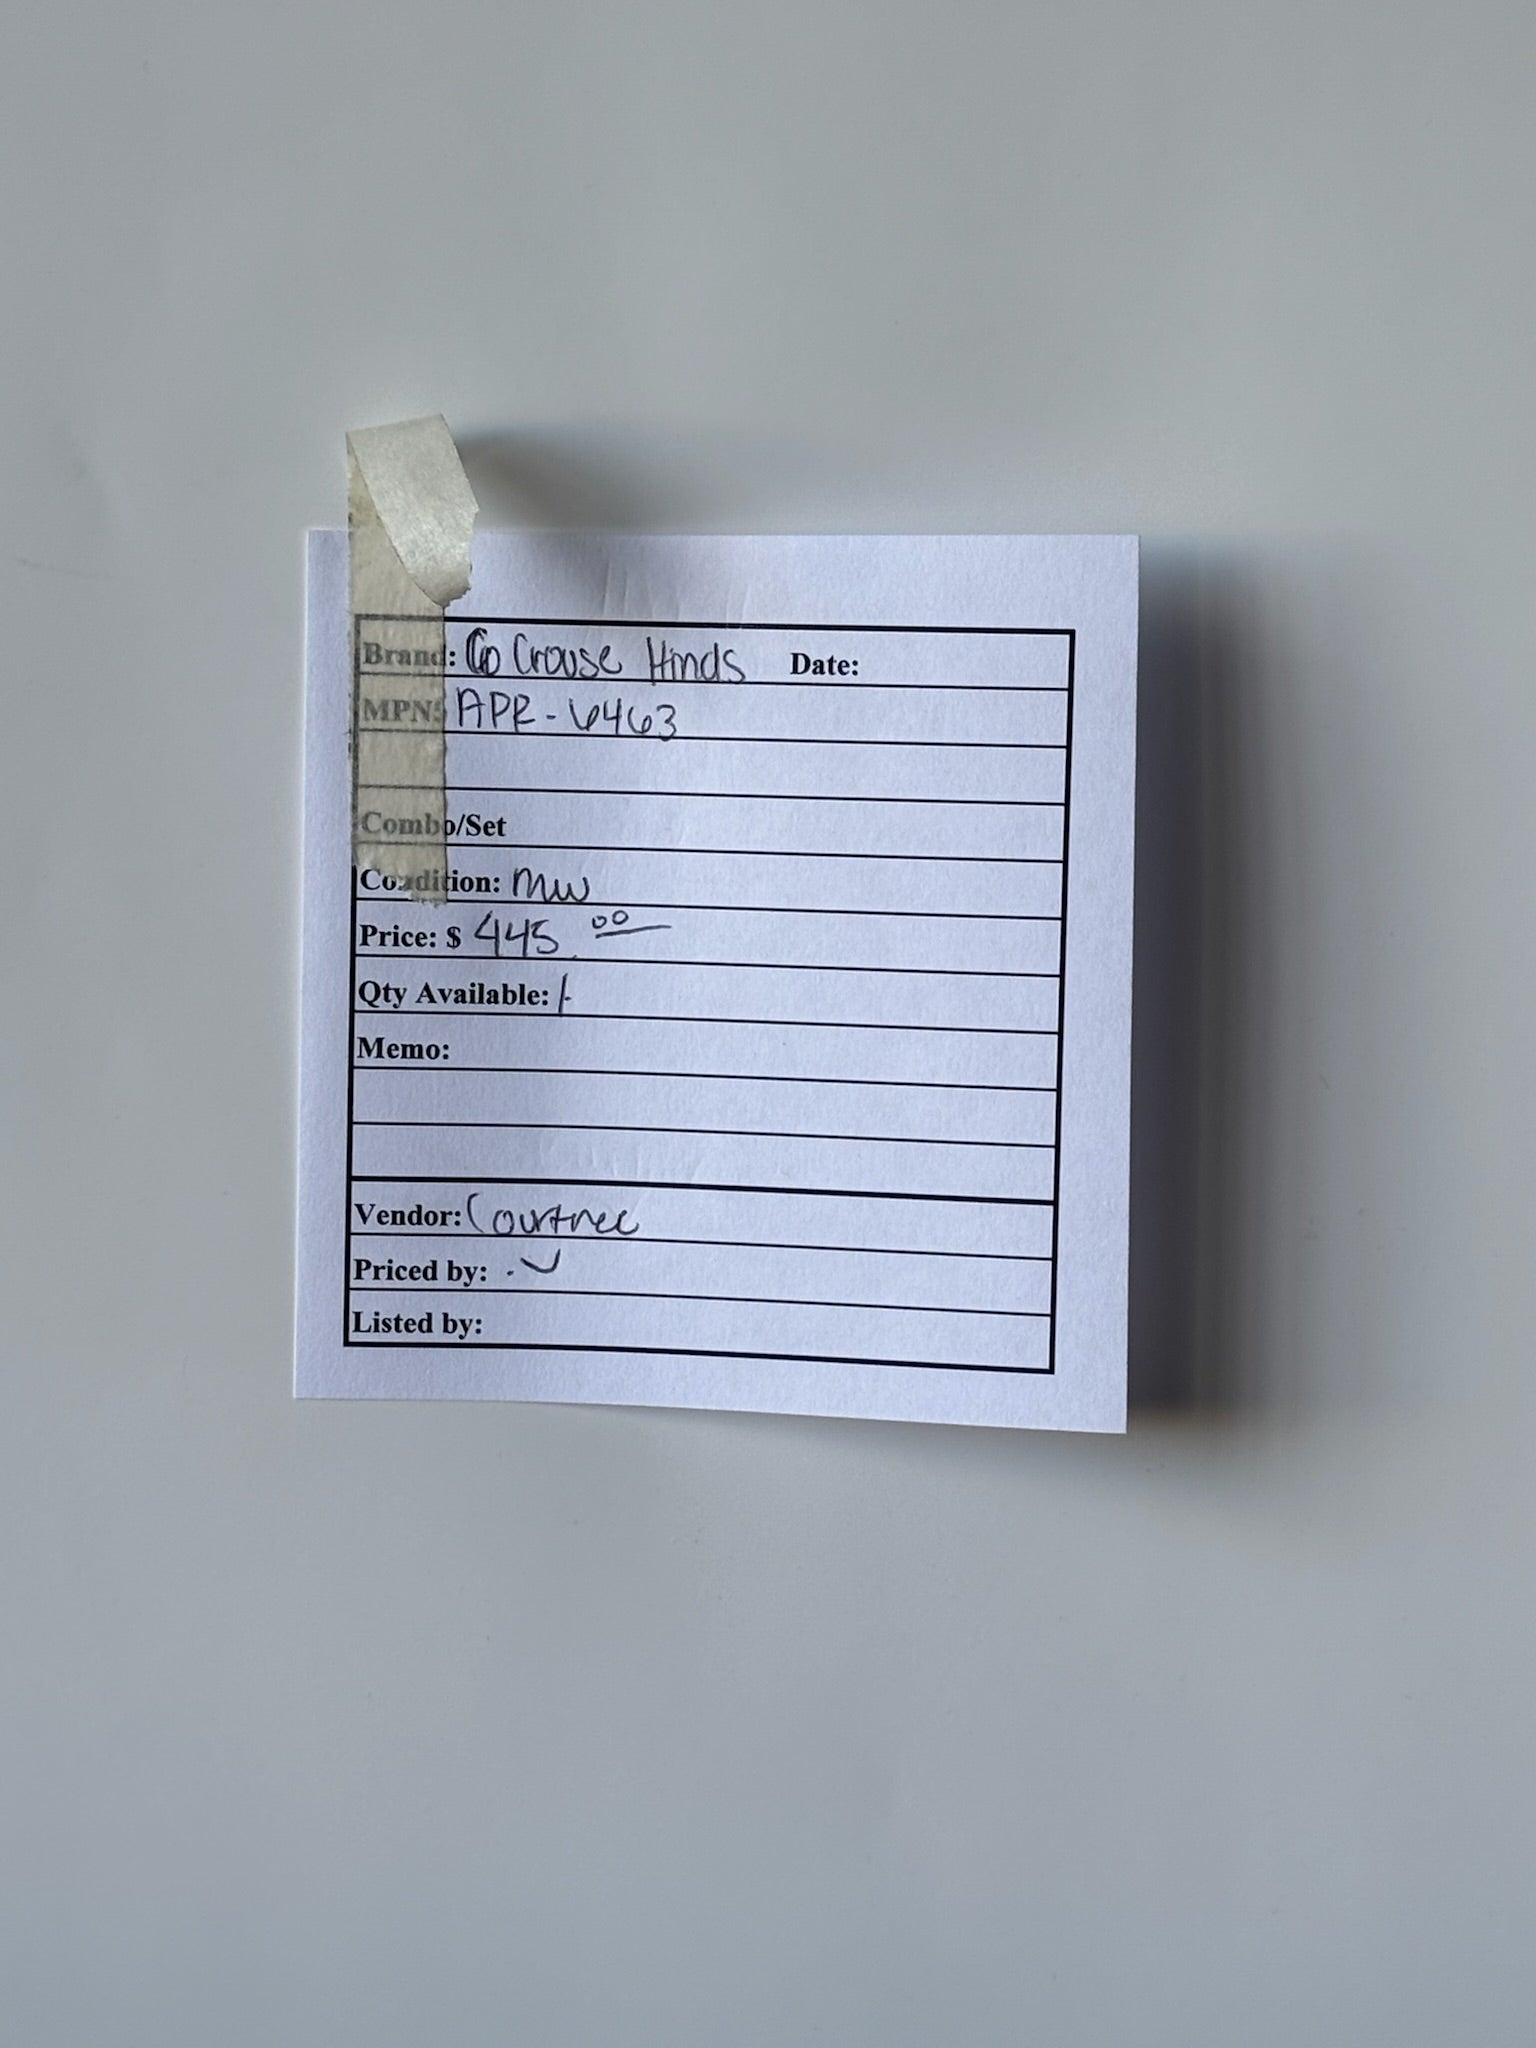 Brand: Go Crouse Hinds Date:
MPNS APR-6463
Combo/Set
Condition: MW
Price: $ 445.00
Qty Available: 1
Memo:
Vendor: Courtnee
Priced by:
Listed by: